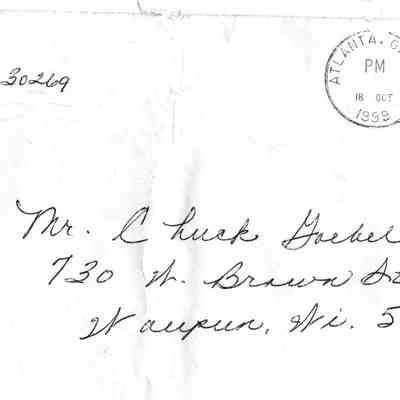 ATLANTA, G
PM
18 OCT
1999
30269
Mr. Chuck Goebel
730 W. Brown St
Waupun, Wi. 5